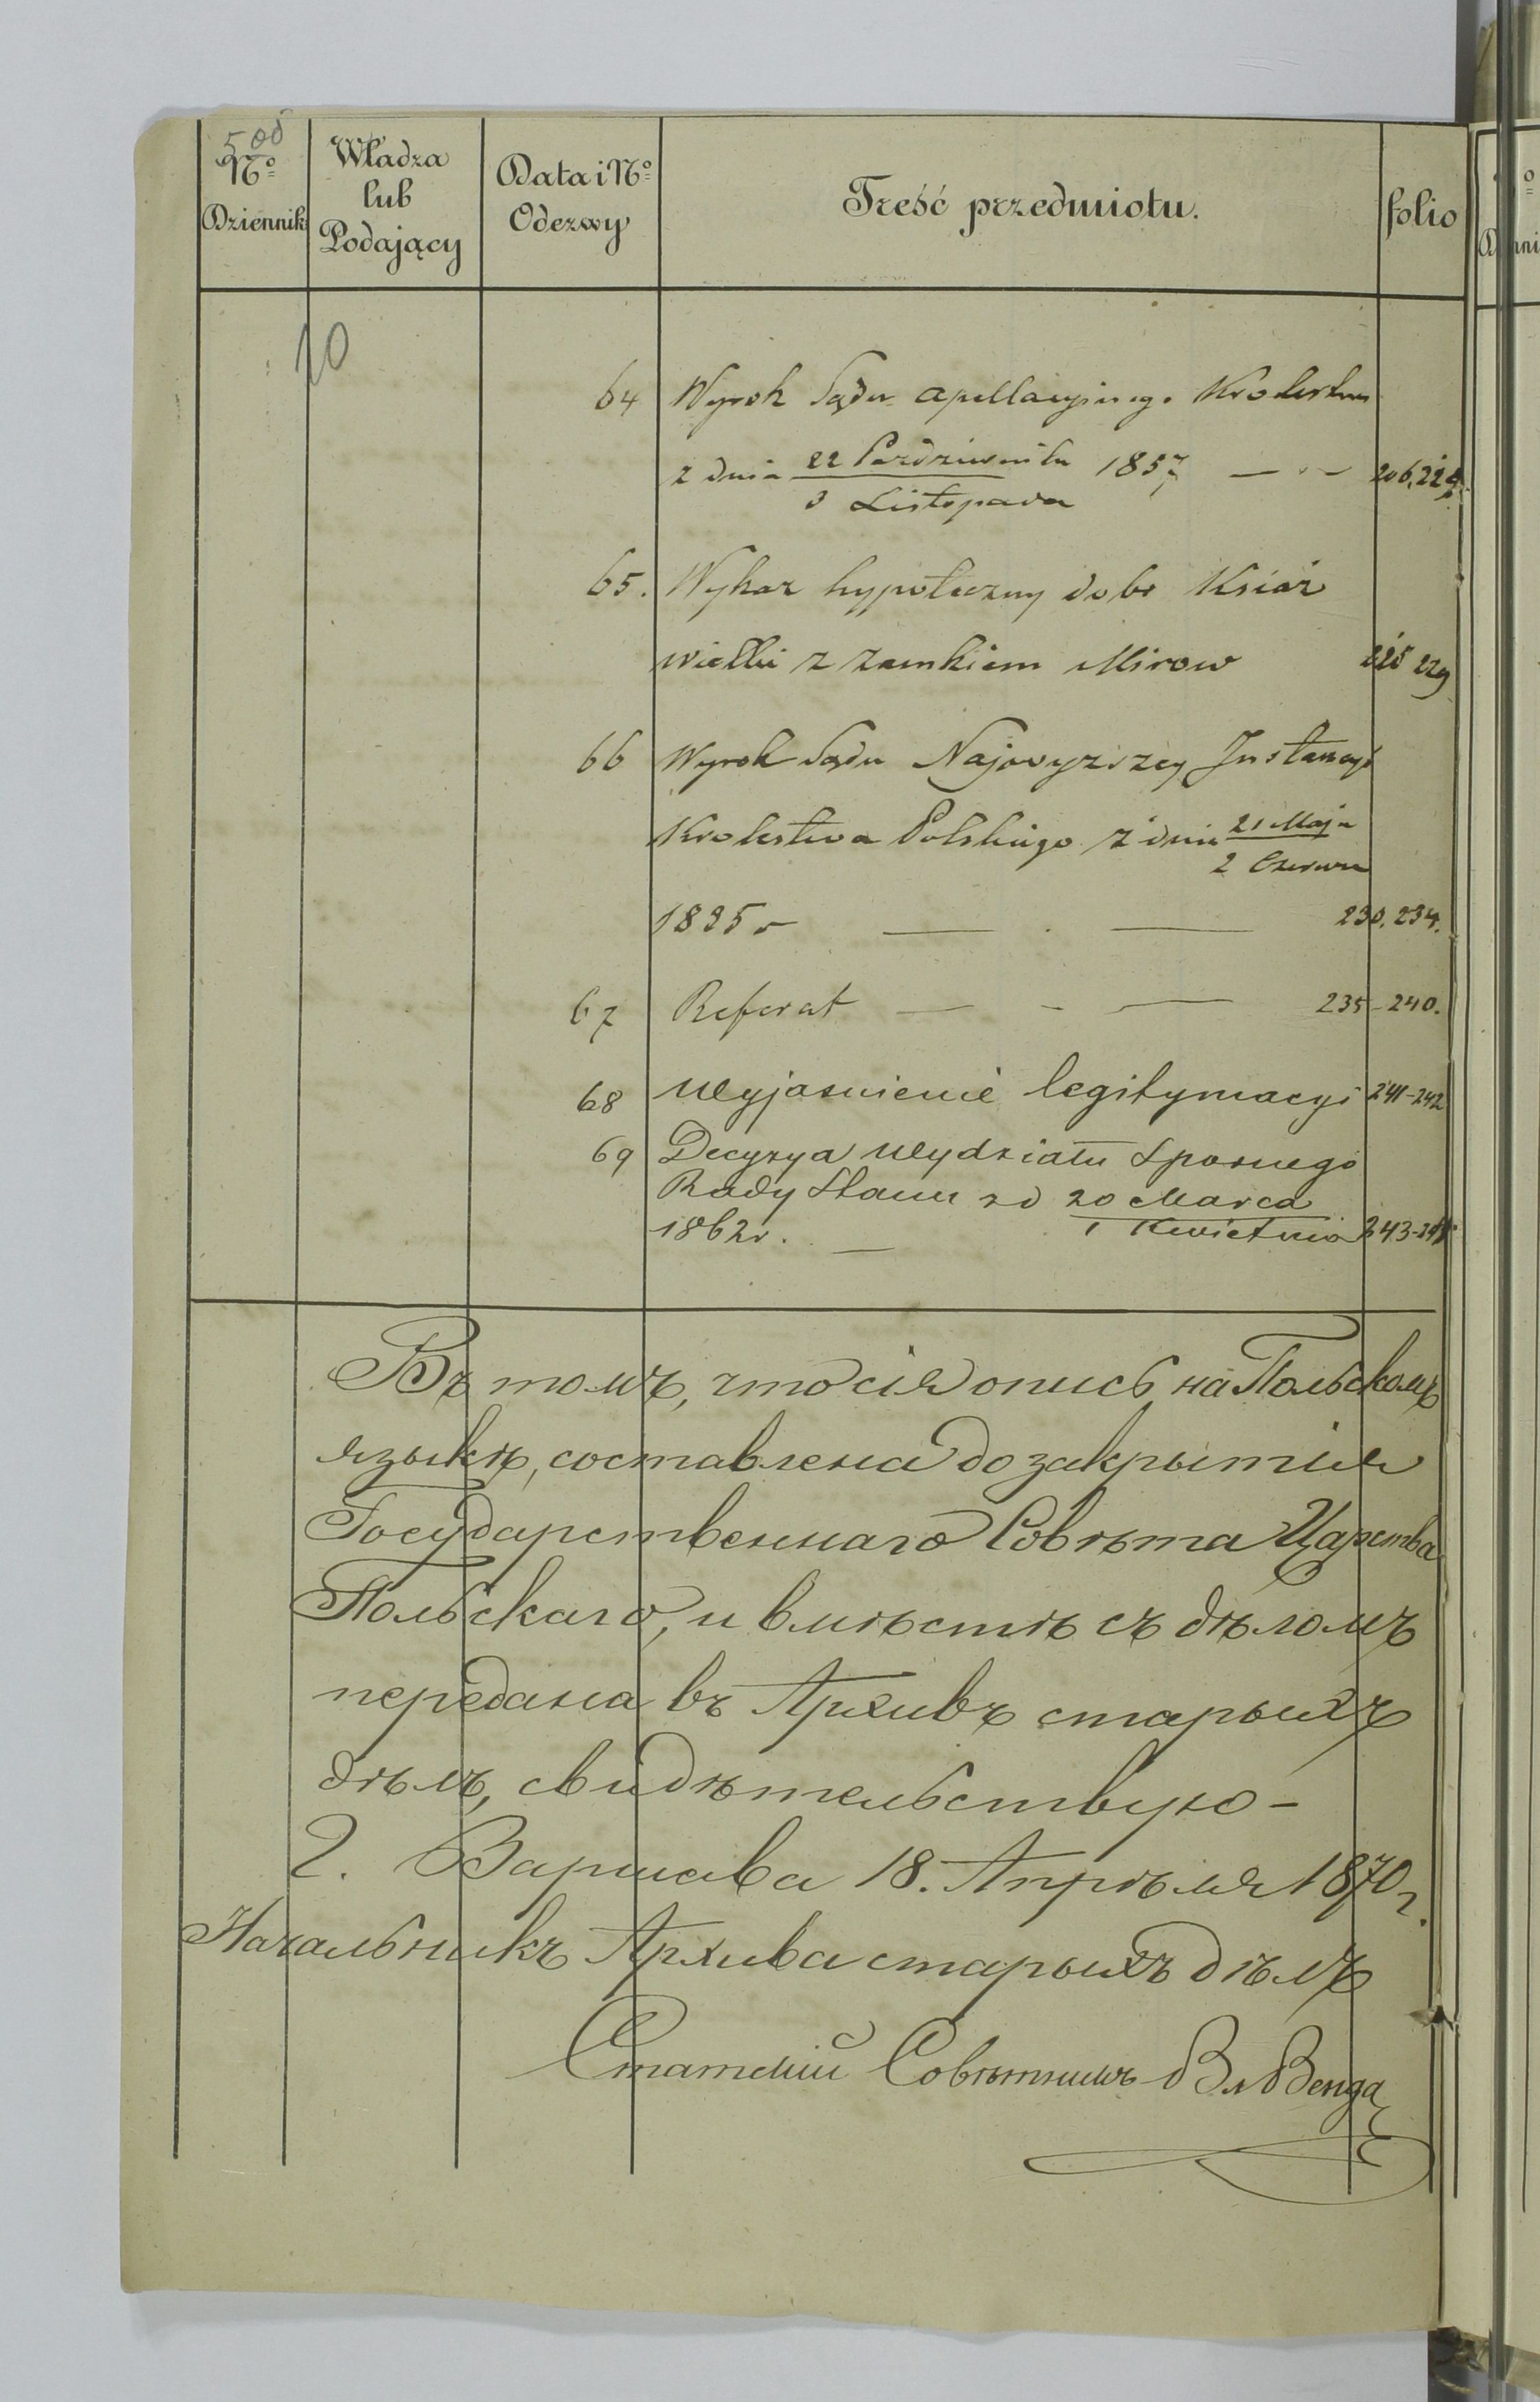 500
No Dziennik
Władza lub Podający
Data i No Odezwy
Treść przedmiotu.
folio
10
64 Wyrok Sądu Apellacyjnego Krolestwa
z dnia 22 Pazdziernika 1857 206.224.
3 Listopada
65. Wykaz hypoteczny dobr Książ
wielki z zamkiem Mirow 225 229
66 Wyrok Sądu Najwyzszey Instancyi
Krolestwa Polskiego z dnia 21 Maja
2 Czerwca
1835 r 230.234.
67 Referat 235-240.
68 Wyjasnienie legitymacyi 241-242
69 Decyzya Wydziału Spornego
Rady Stanu z d 20 Marca
1862r. 1 Kwietnia
Въ томъ, что сія опись на Польскомъ
языкѣ, составлена до закрытія
Государственнаго Совѣта Царства
Польскаго, и вмѣстѣ съ дѣломъ
передана въ Архивъ старыхъ
дѣлъ, свидѣтельствую –
Г. Варшава 18. Апрѣля 1870 г.
Начальникъ Архива старыхъ дѣлъ
Статскій Совѣтникъ Вл Венда